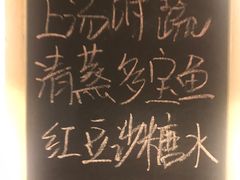 上汤时蔬
清蒸多宝鱼
红豆沙糖水